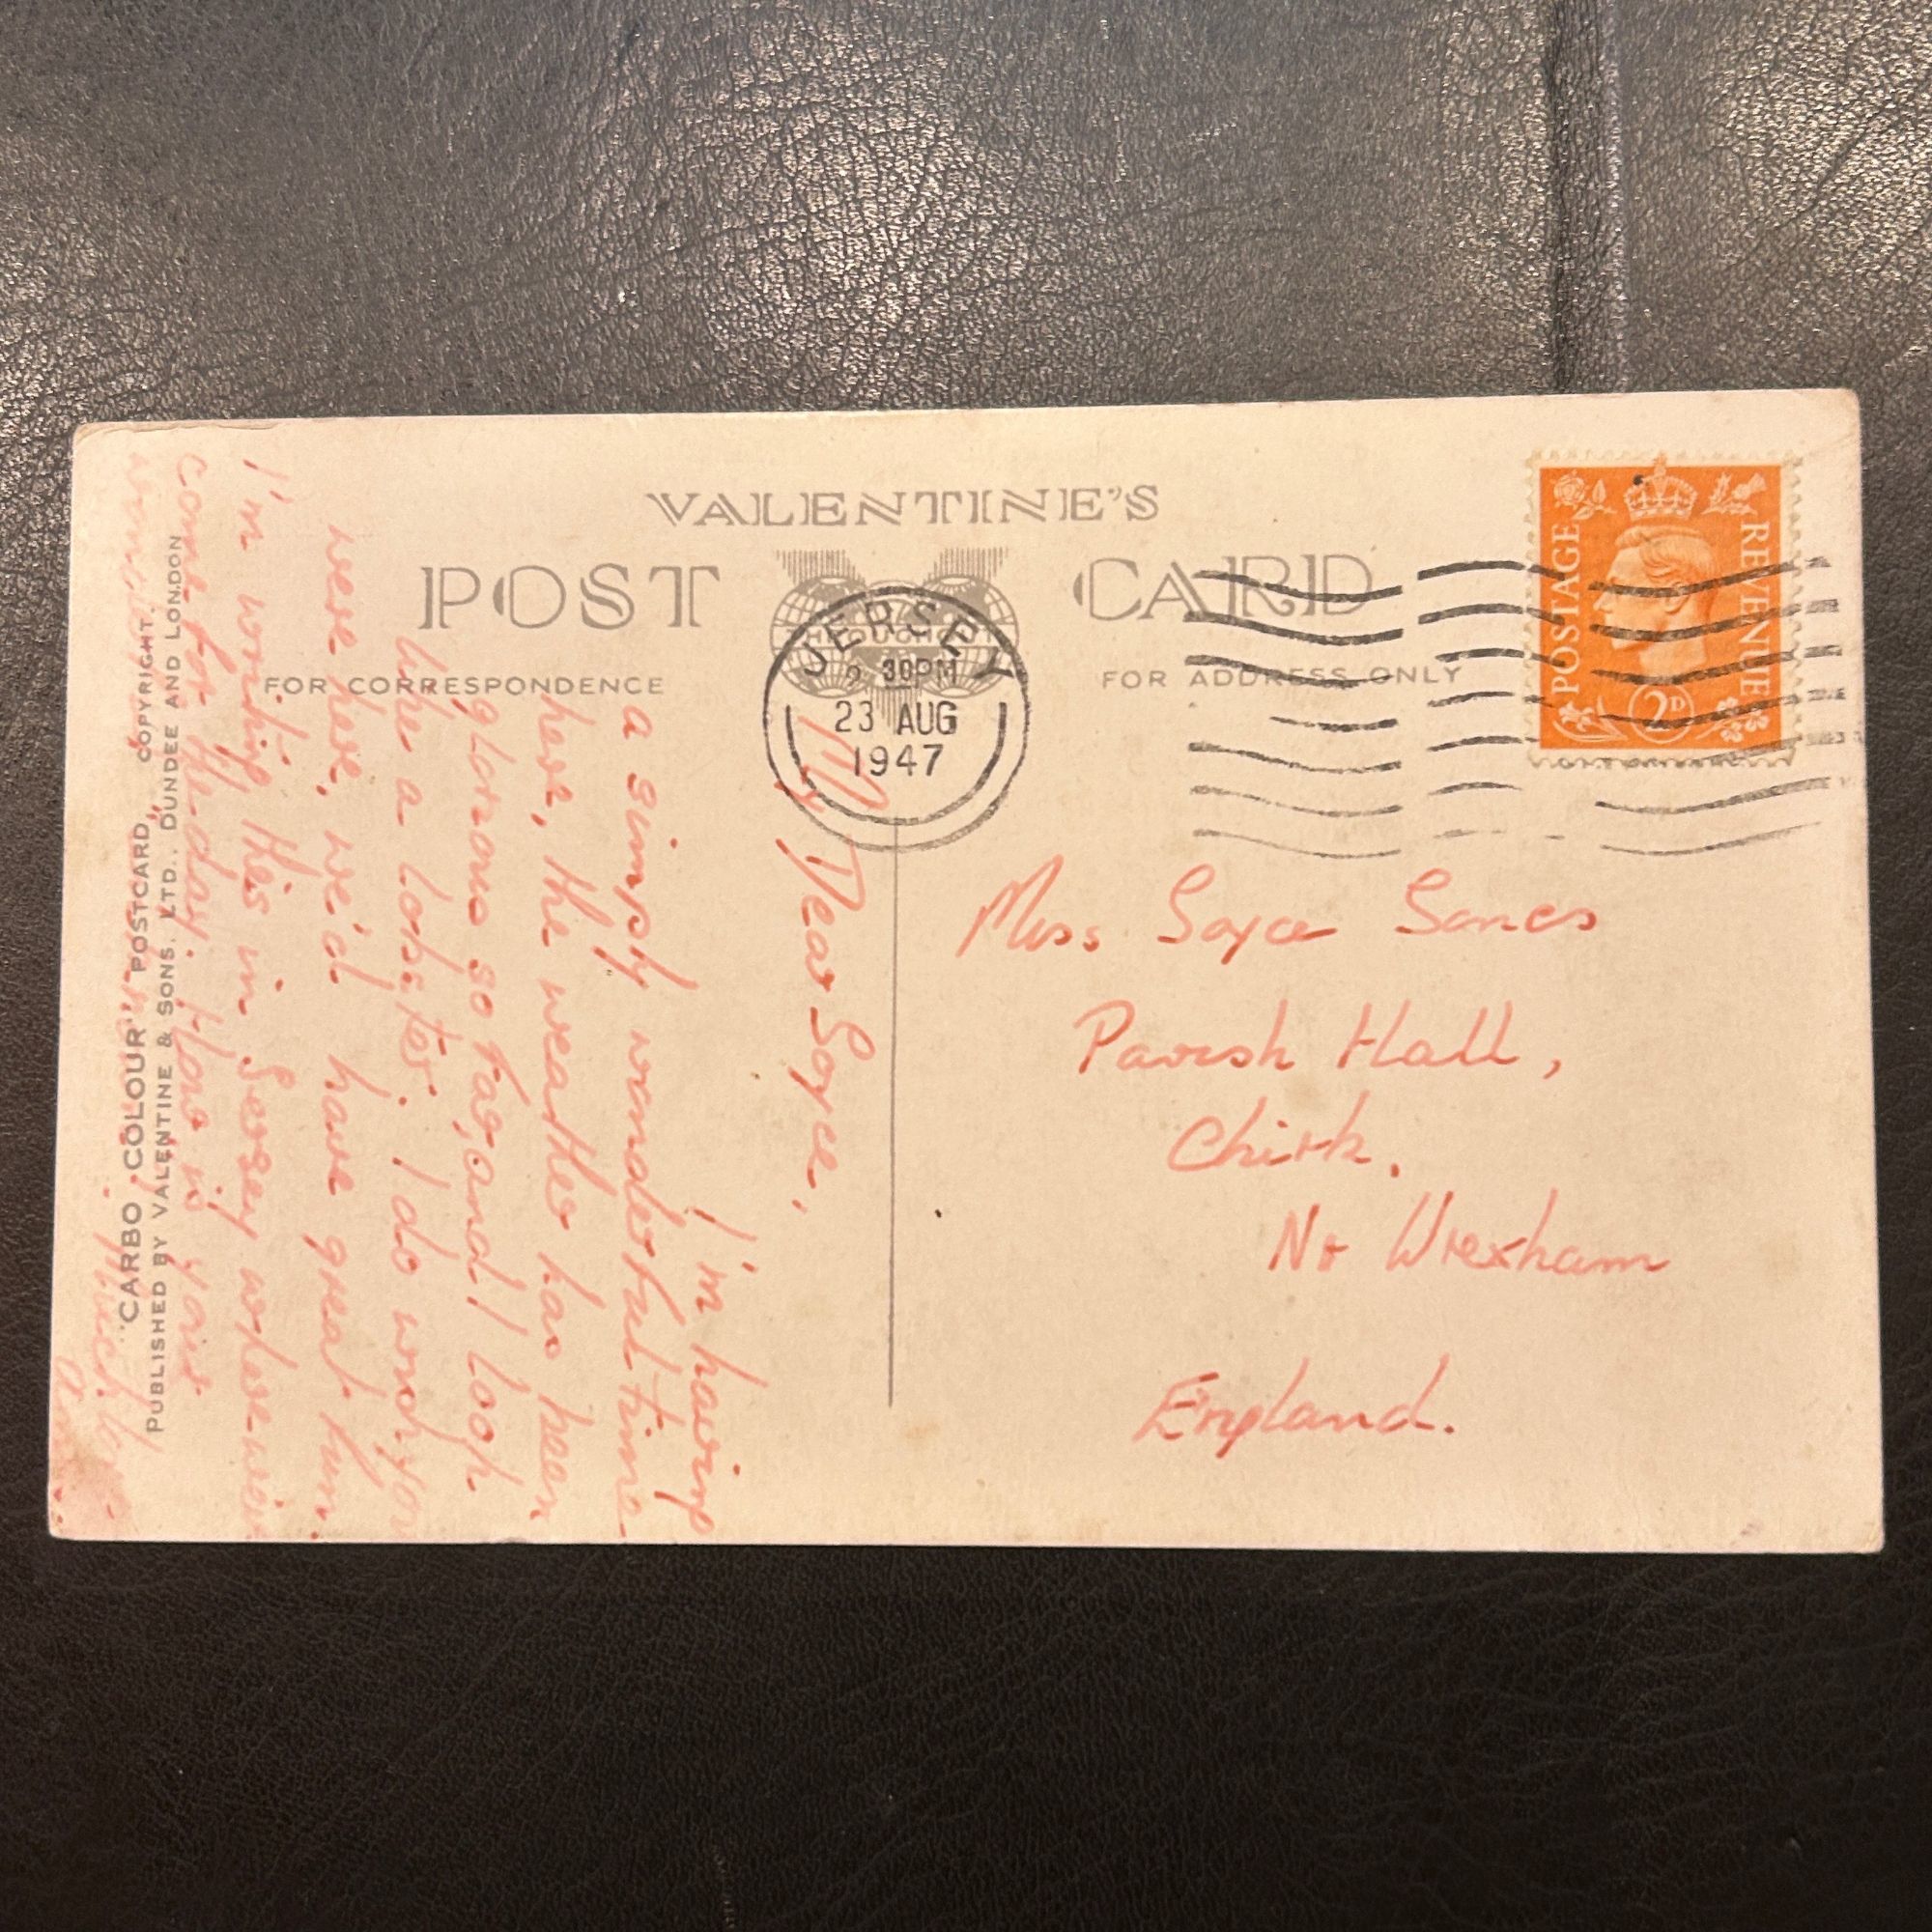 VALENTINE'S
POST CARD
FOR CORRESPONDENCE
FOR ADDRESS ONLY
JERSEY
30PM
23 AUG
1947
POSTAGE
REVENUE
2D
My Dear Joyce,
I'm having
a simply wonderful time
here, the weather has been
glorious so far, and I look
like a lobster. I do wish you
were here, we'd have great fun
I'm writing this in Jersey where we've
come for the day. How is your
Miss Joyce Jones
Parish Hall,
Chirk.
Nr Wrexham
England.
"CARBO COLOUR" POSTCARD. COPYRIGHT.
PUBLISHED BY VALENTINE & SONS. LTD., DUNDEE AND LONDON